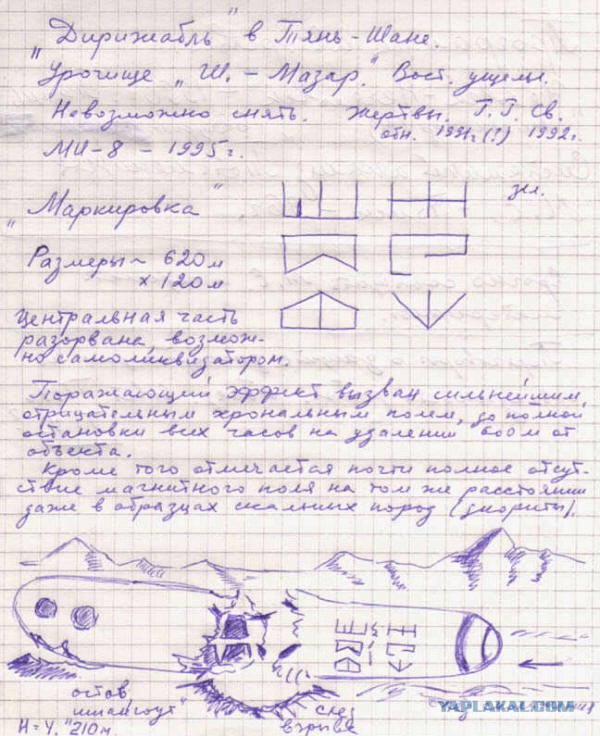 "Дирижабль" в Тянь-Шане.
Урочище "Ш.-Мазар." Вост. ущелье.
Невозможно снять. Жертвы. Г.Г. Св.
отн. 1991г(?) 1992г.
МИ-8 - 1995г.
зел.
"Маркировка"
Размеры ~ 620м
х 120м
Центральная часть
разорвана, возмож-
но самоликвизатором.
Поражающий эффект вызван сильнейшим,
отрицательным хрональным полем, до полной
остановки всех часов на удалении 600м от
объекта.
Кроме того отмечается почти полное отсут-
ствие магнитного поля на том же расстоянии
даже в образцах скальных пород (диориты).
остов
шпангоут"
след
взрыва
H=Ч. "210м.
YAPLAKAL.COM